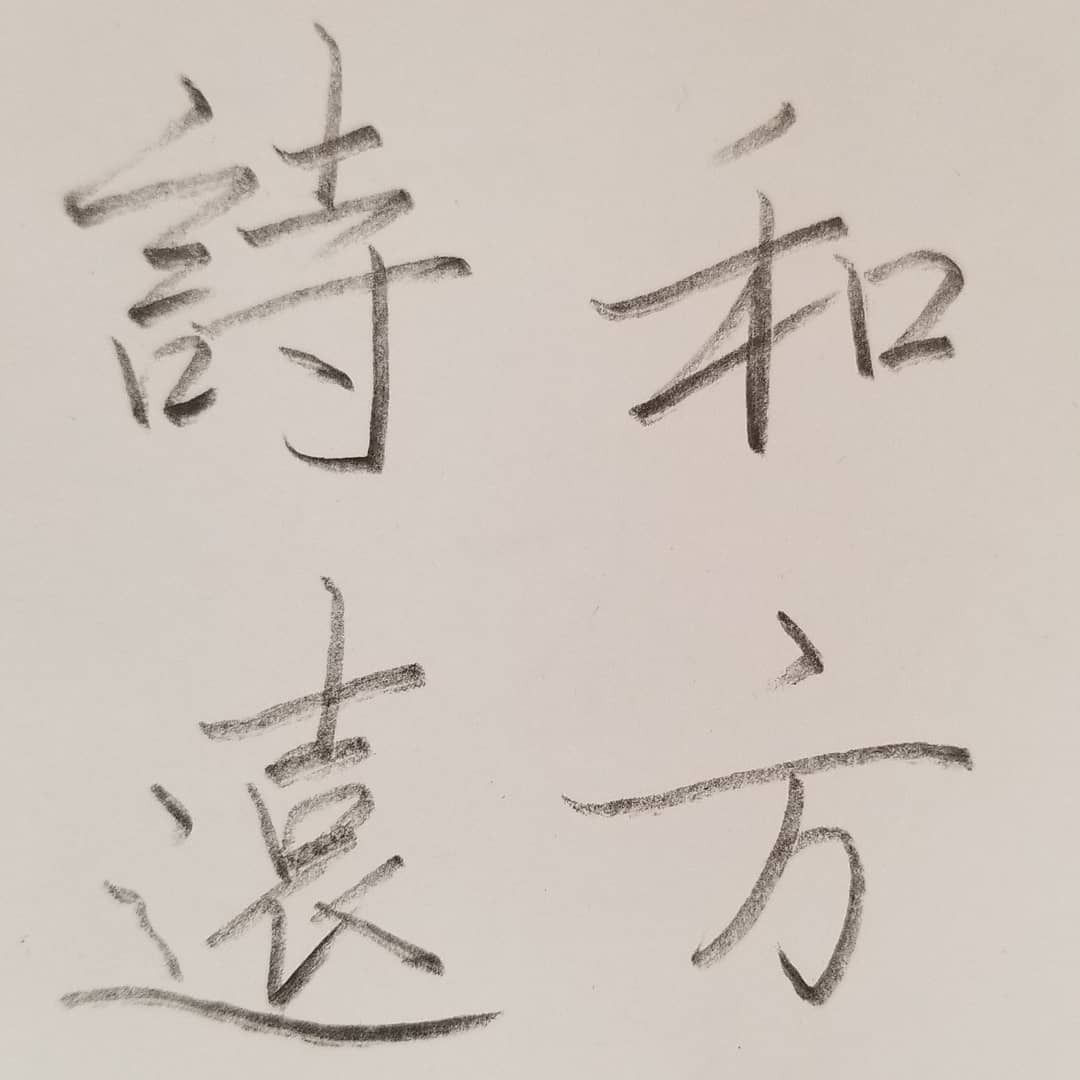 詩和
遠方